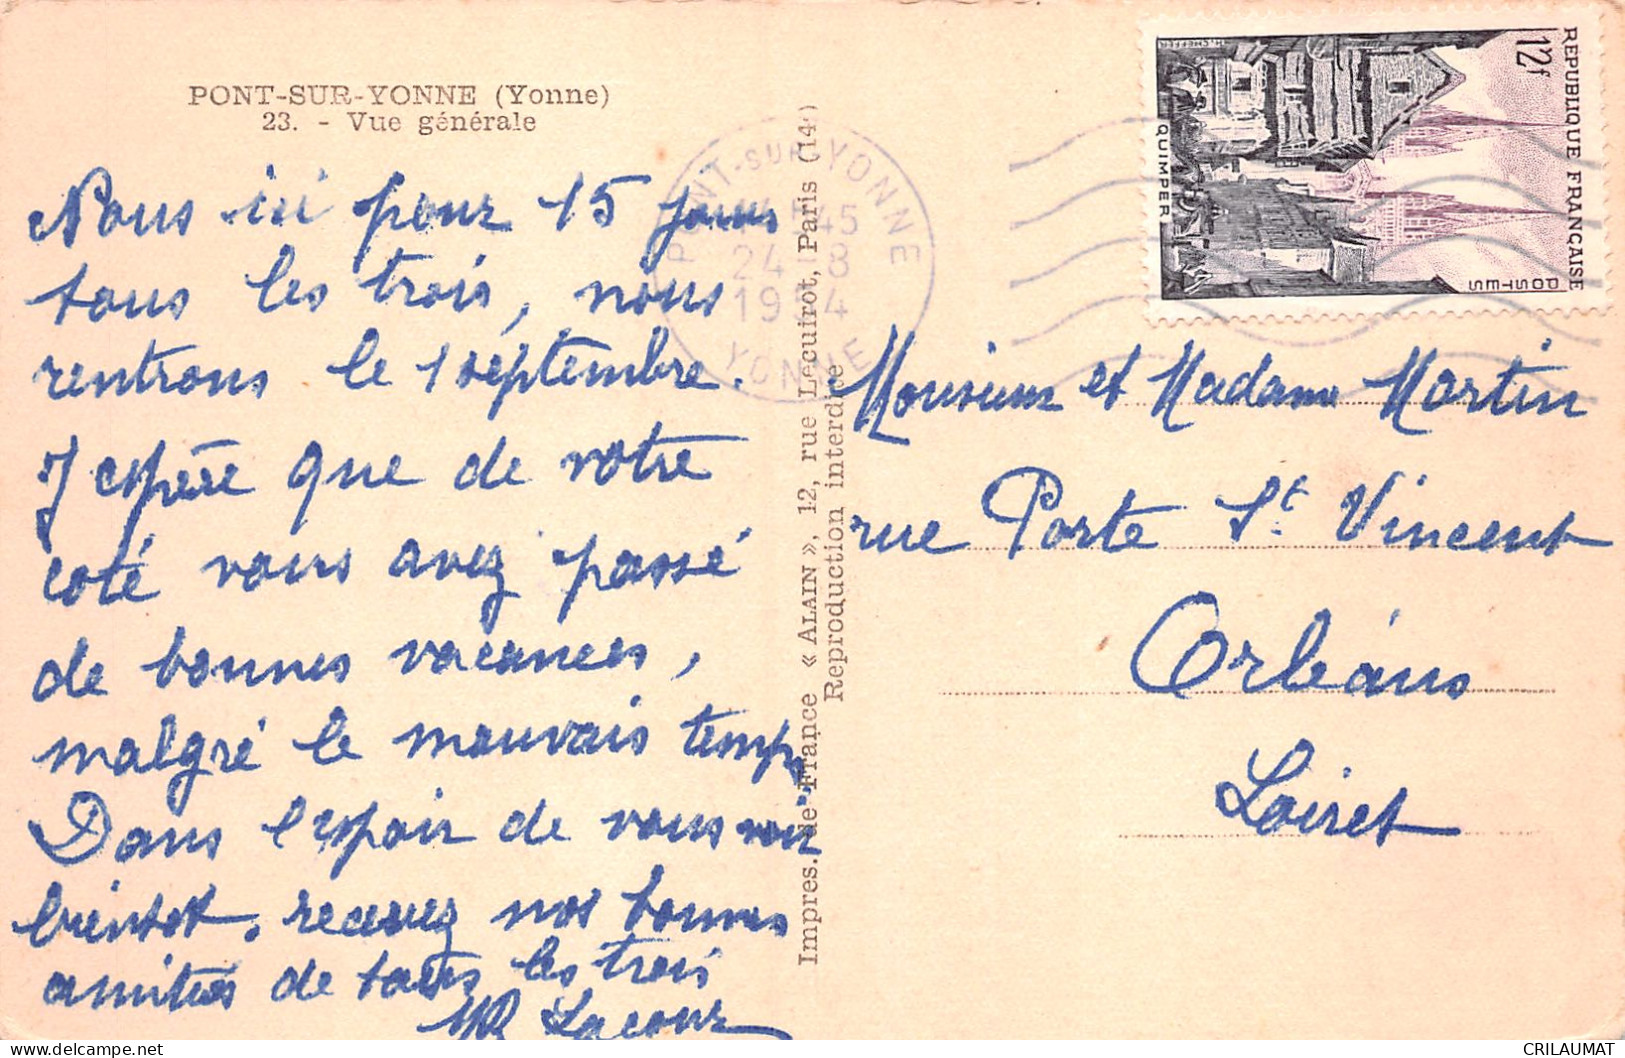 PONT-SUR-YONNE (Yonne)
23. - Vue générale
Nous ici pour 15 jours
tous les trois, nous
rentrons le 1 septembre.
J espère que de votre
coté vous avez passé
de bonnes vacances,
malgré le mauvais temps
Dans l espoir de vous voir
bientot, recevez nos bonnes
amitiés de tous les trois
Lacour
Impres. de France « ALAIN », 12, rue Lecuirot, Paris (14e)
Reproduction interdite
PONT-SUR-YONNE
24 - 8
1954
YONNE
REPUBLIQUE FRANÇAISE
12f
POSTES
QUIMPER
H. CHEFFER
Monsieur et Madame Martin
rue Porte St Vincent
Orléans
Loiret
CRILAUMAT